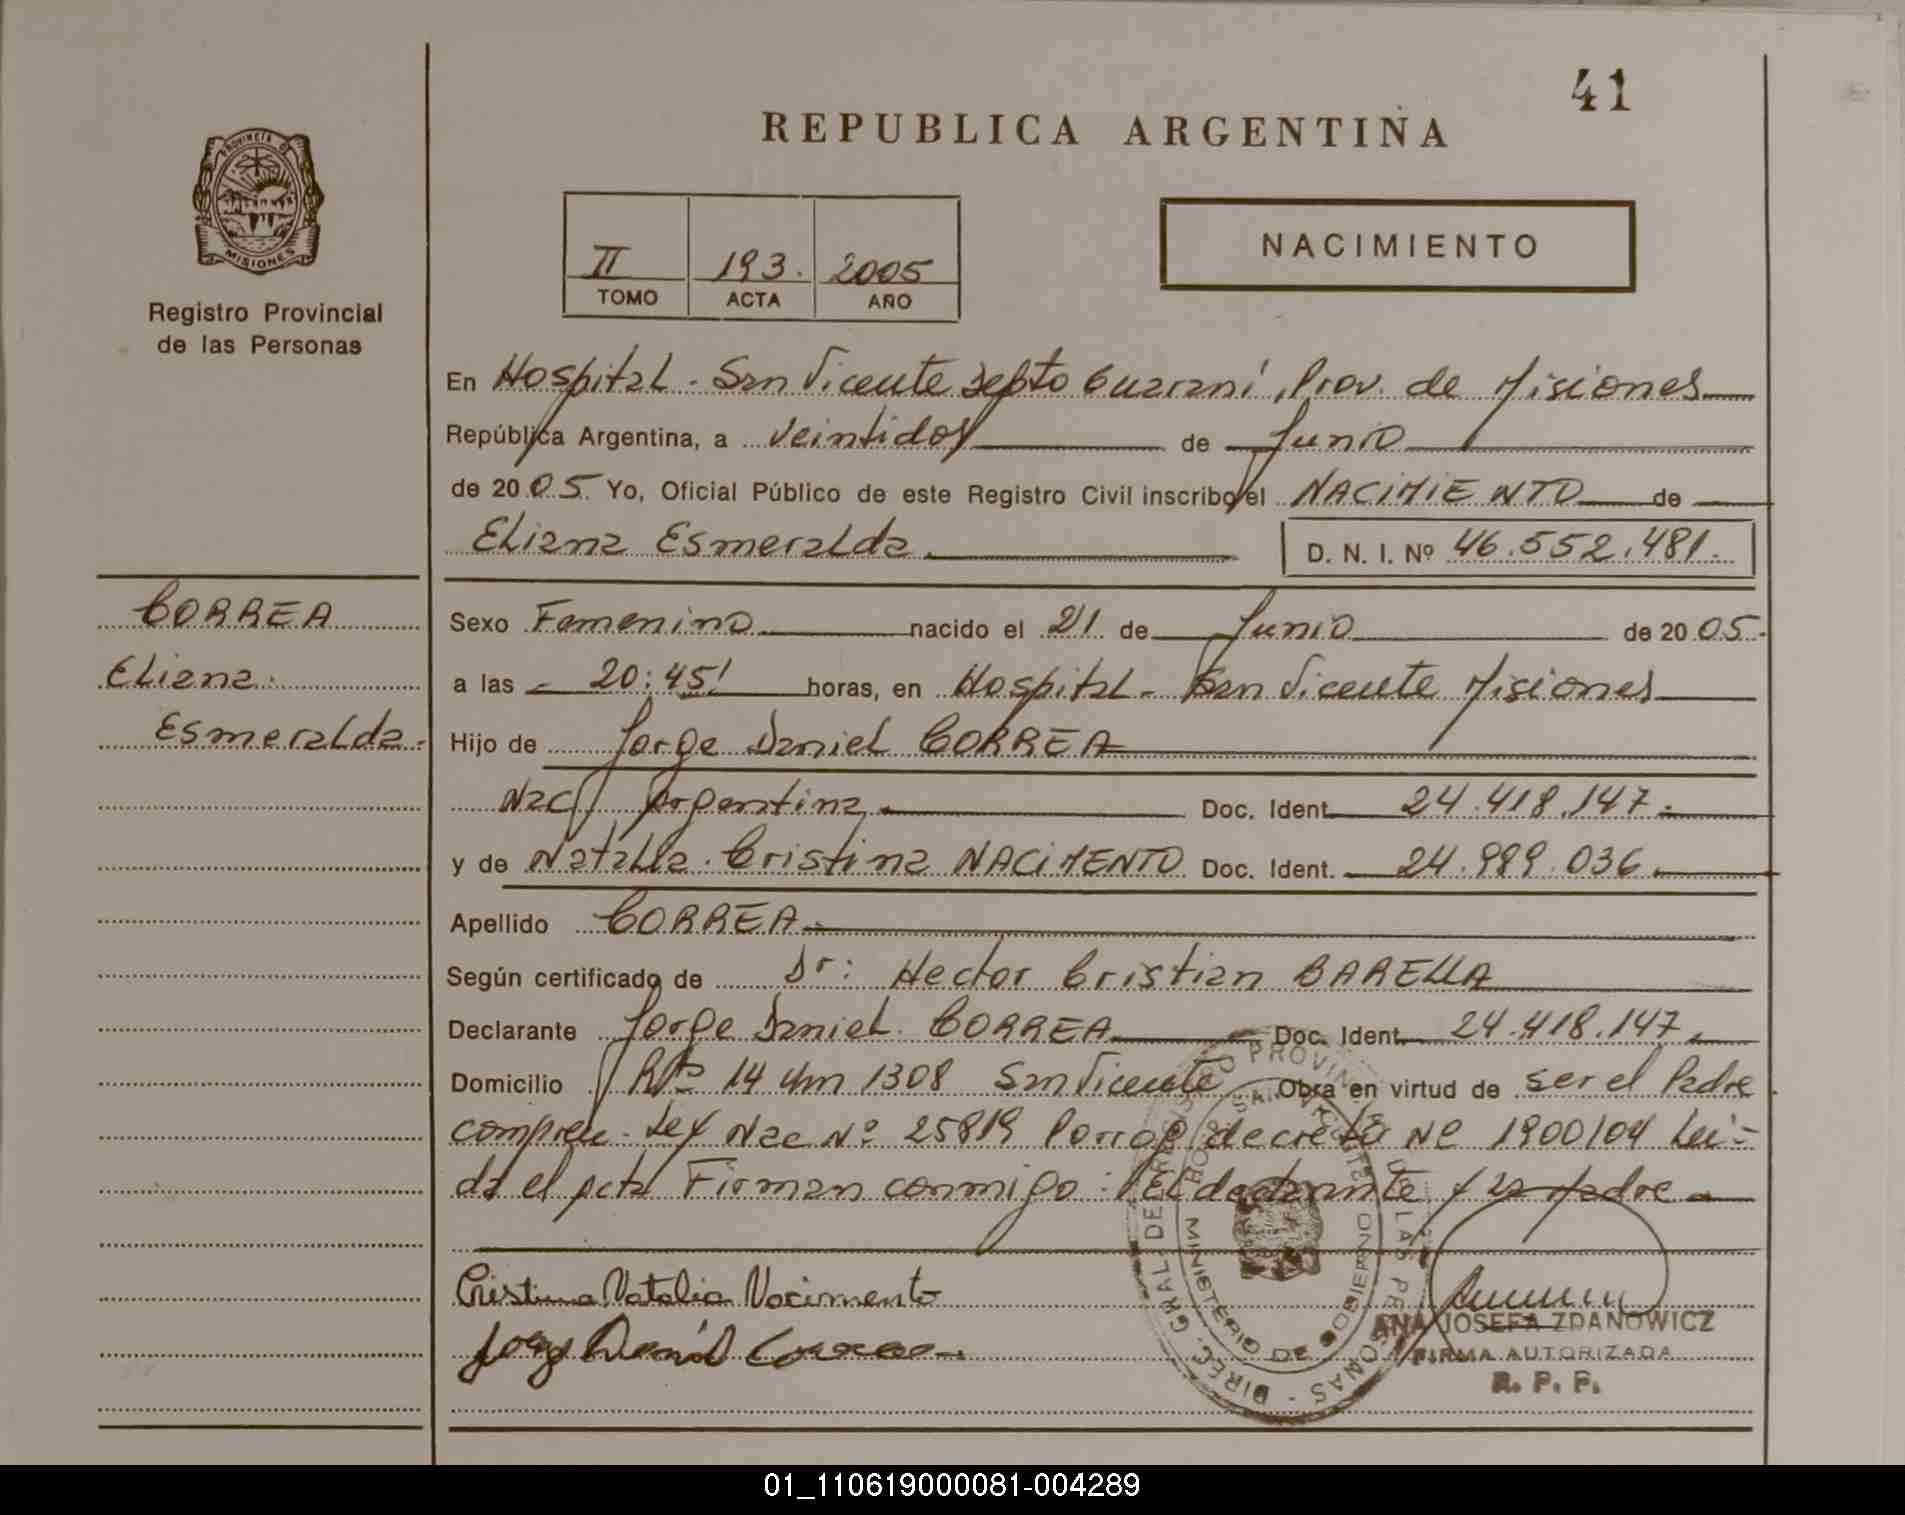 41
REPUBLICA ARGENTINA
PROVINCIA DE
MISIONES
Registro Provincial
de las Personas
II 193. 2005
TOMO ACTA AÑO
NACIMIENTO
En Hospital - San Vicente Depto Guaraní, Prov. de Misiones
República Argentina, a veintidos de Junio
de 2005. Yo, Oficial Público de este Registro Civil inscribo el NACIMIENTO de
Eliana Esmeralda. D. N. I. Nº 46.552.481.
CORREA
Eliana
Esmeralda.
Sexo Femenino nacido el 21 de Junio de 2005.
a las 20:45' horas, en Hospital - San Vicente Misiones
Hijo de Jorge Daniel CORREA
Nac Argentina Doc. Ident. 24.418.147.
y de Natalia Cristina NACIMENTO Doc. Ident. 24.989.036.
Apellido CORREA.
Según certificado de Dr: Hector Cristian BARELLA
Declarante Jorge Daniel CORREA Doc. Ident. 24.418.147.
Domicilio Rta 14 Km 1308 San Vicente Obra en virtud de ser el Padre
Ley Nac Nº 25819 decreto Nº 1900/04 Lei-
da el acta Firman conmigo: El declarante y la Madre
Cristina Natalia Nacimento
Correa
DIREC. GRAL. DE REGISTRO PROVIN DE LAS PERSONAS
MINISTERIO DE GOBIERNO
SAN VICENTE
ANA JOSEFA ZDANOWICZ
FIRMA AUTORIZADA
R. P. P.
01_110619000081-004289